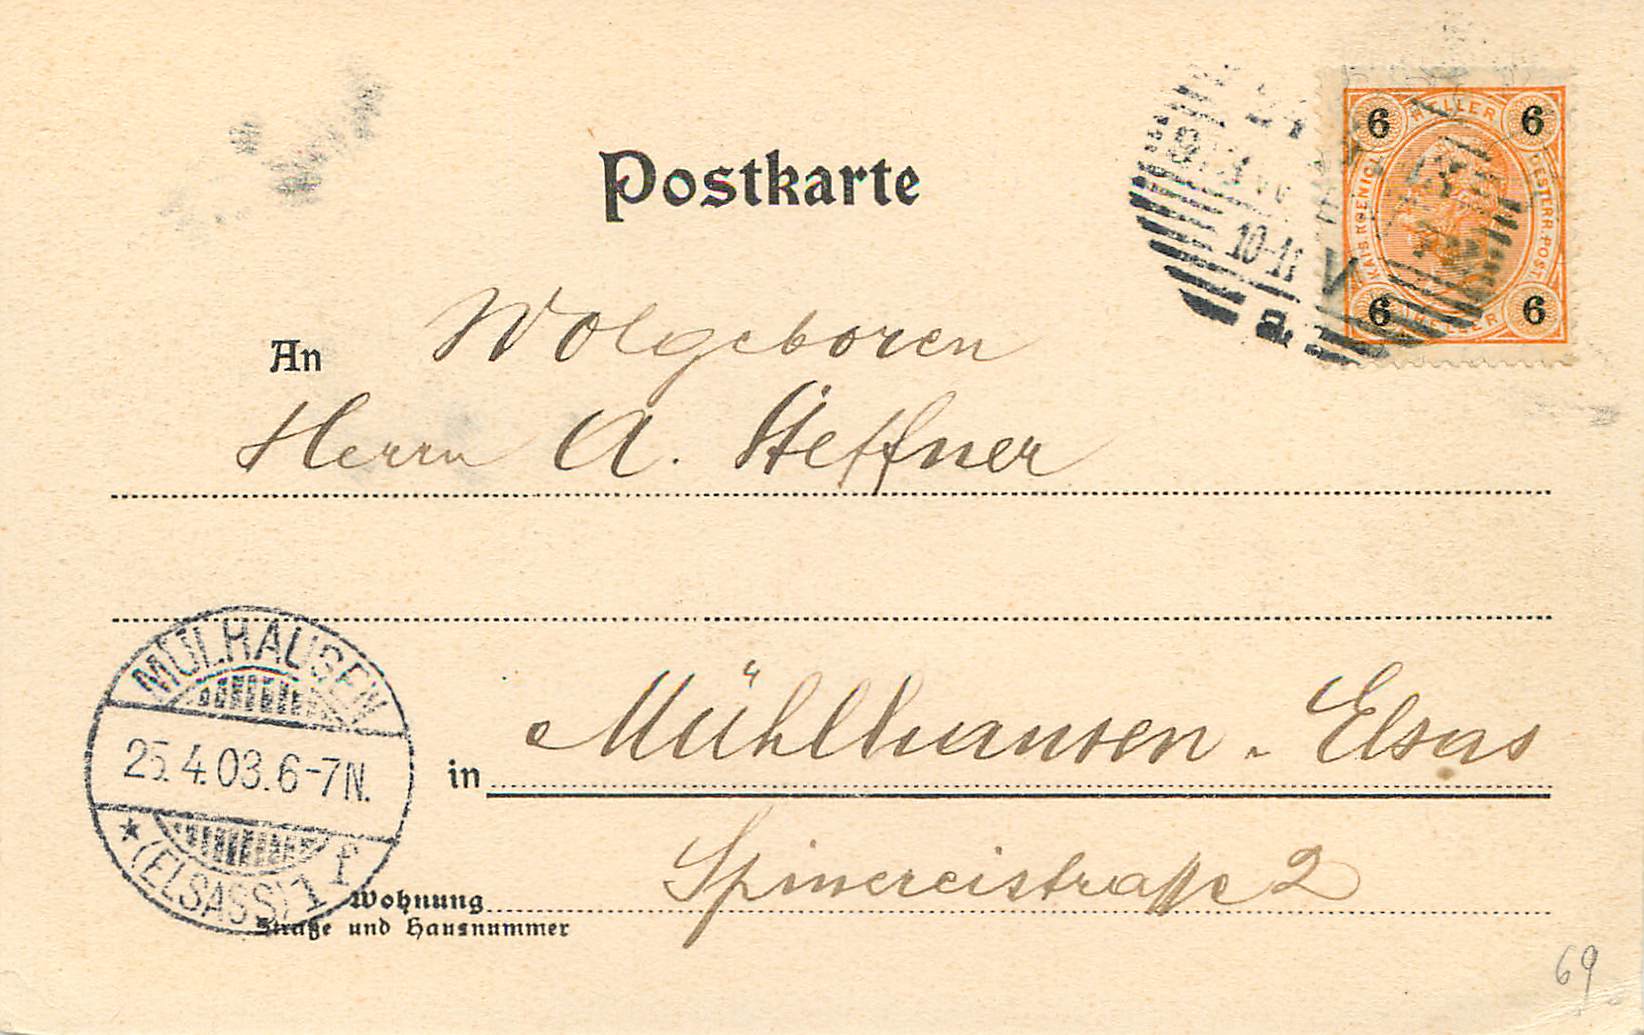 Postkarte
6 HELLER 6
KAIS. KOENIGL. OESTERR. POST.
6 HELLER 6
10-11 V
a.
An Wolgeboren
Herrn A. Steffner
MÜLHAUSEN
25.4.03. 6-7N.
* (ELSASS) 1 f
in Mühlhausen - Elsas
Spinereistrasse 2
Wohnung
Straße und Hausnummer
69